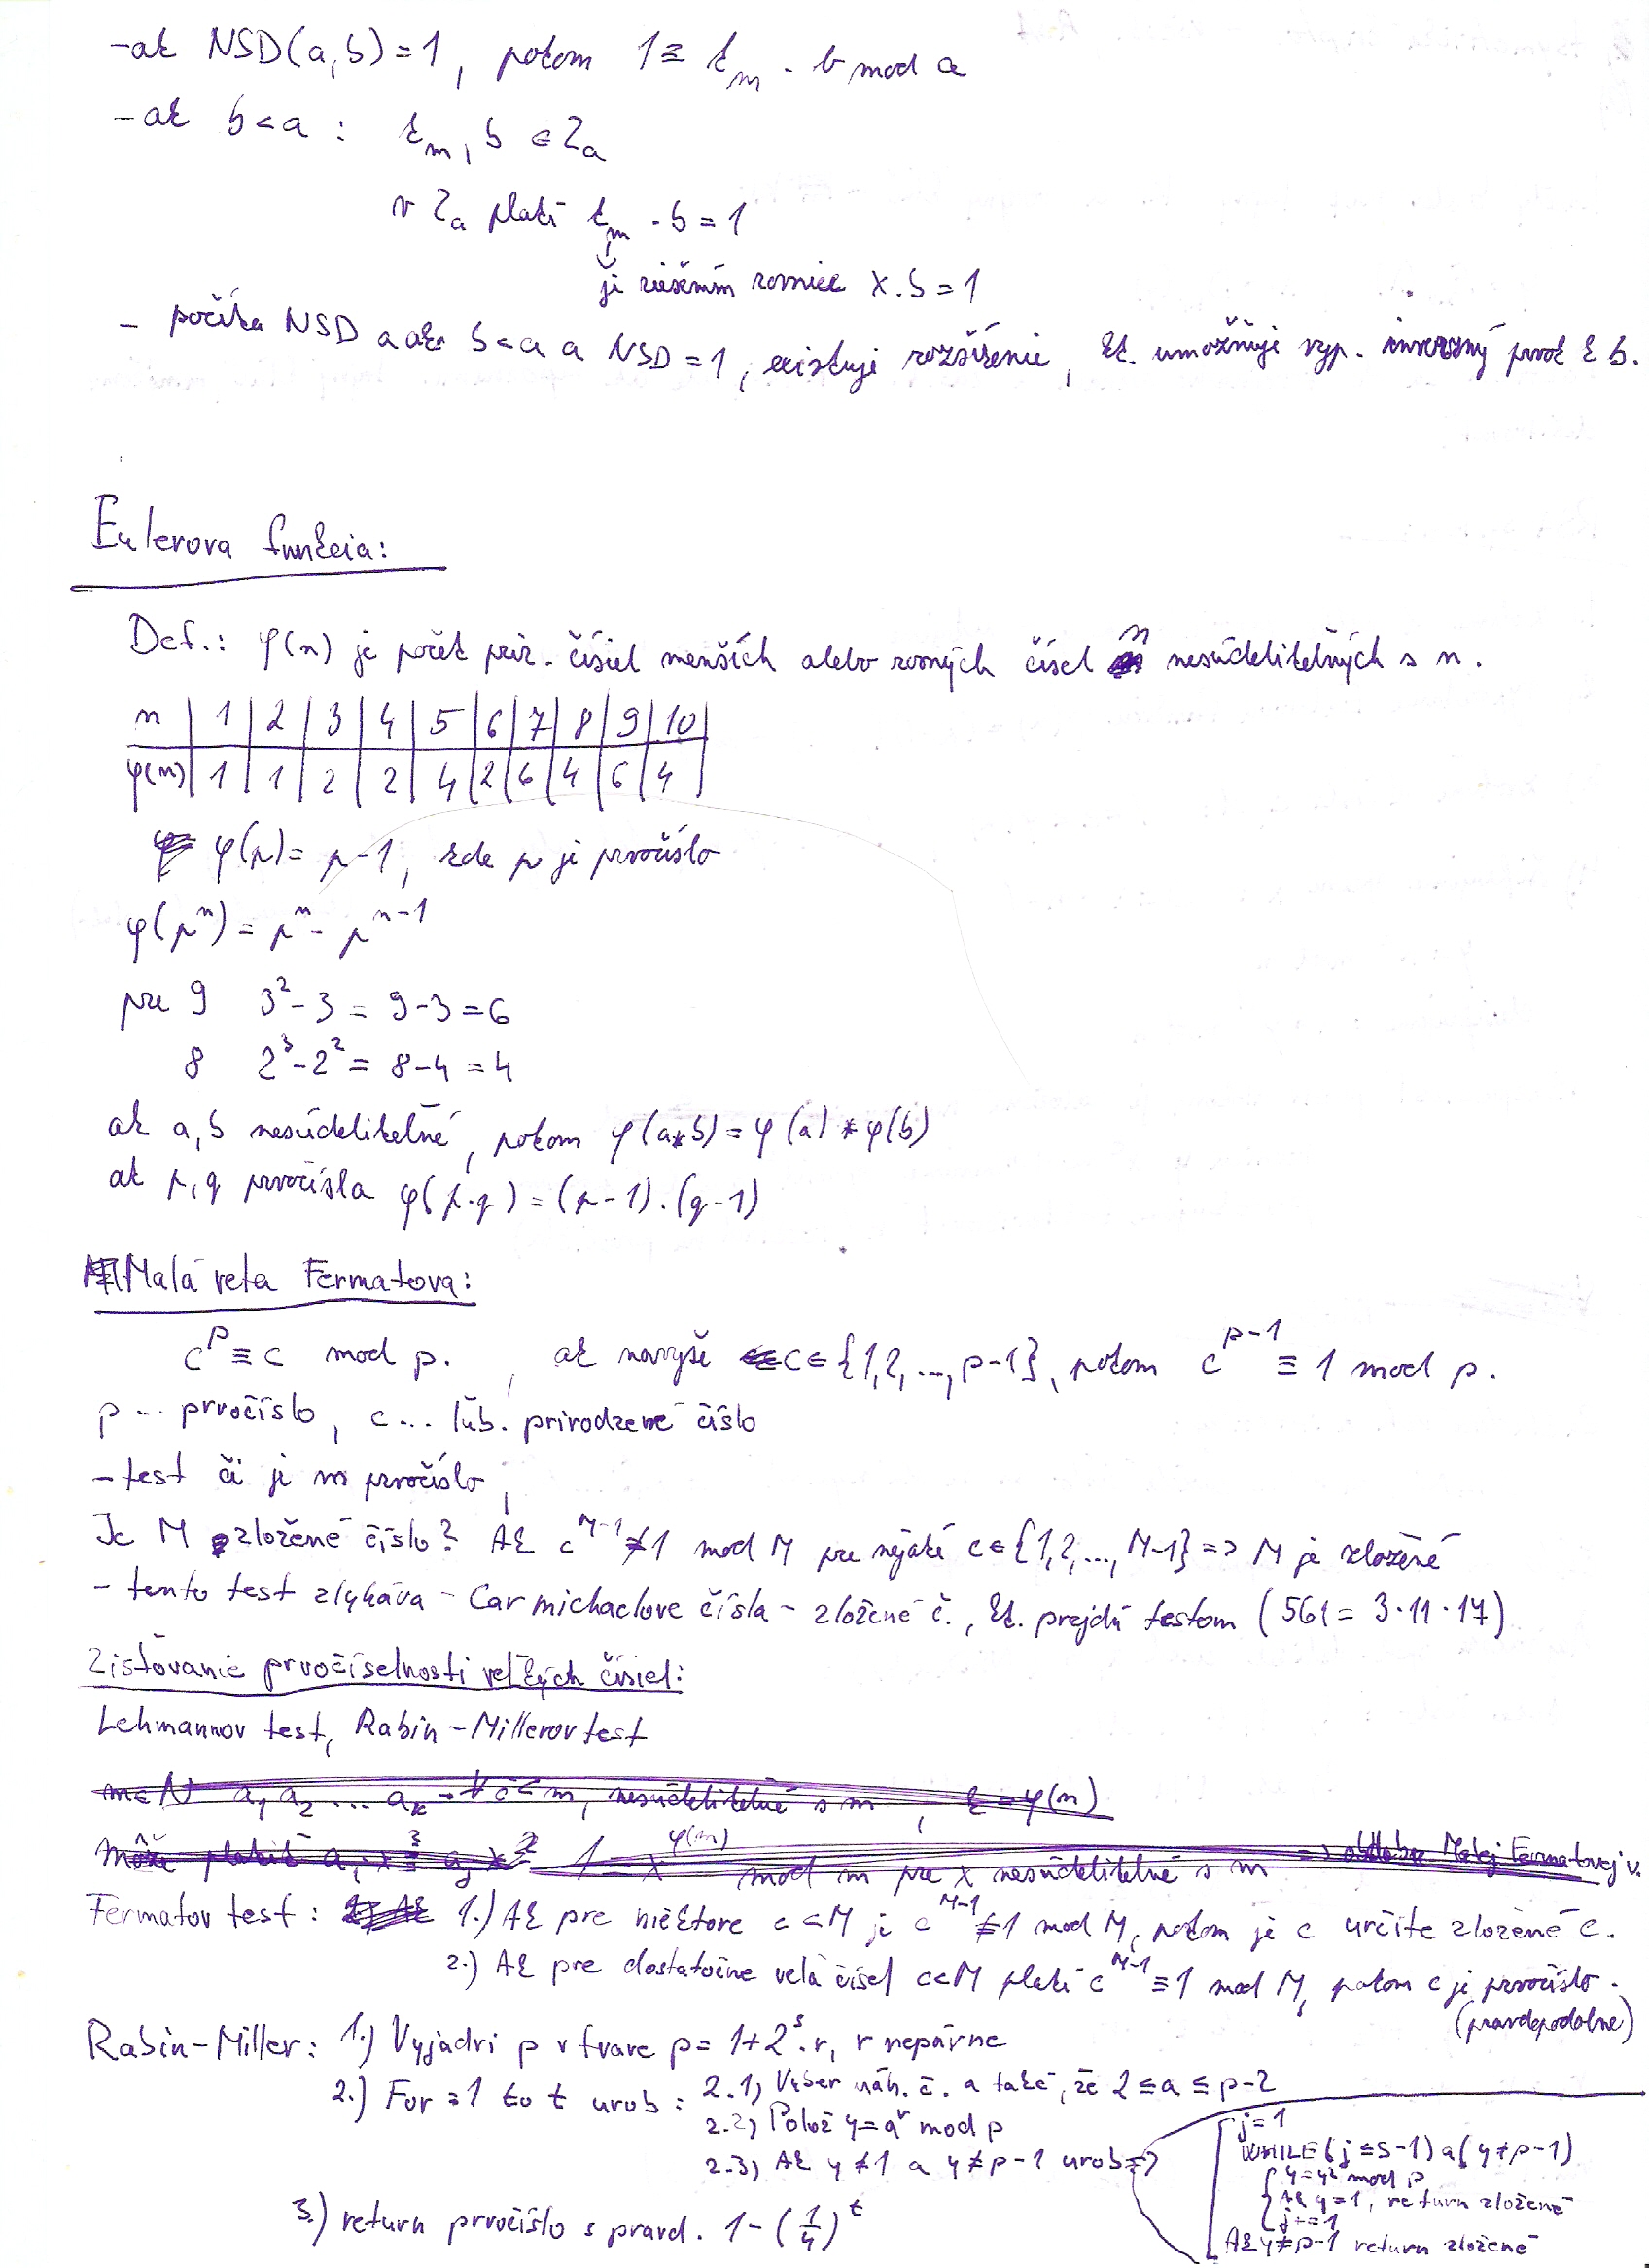 -ak NSD(a,b)=1, potom 1≡ t_m . b mod a
-ak b<a : t_m, b ∈ Z_a
v Z_a platí t_m . b = 1
je riešením rovnice x.b=1
- počíta NSD a ak b<a a NSD=1, existuje rozšírenie, kt. umožňuje vyp. inverzný prvok k b.
Eulerova funkcia:
Def.: φ(n) je počet prir. čísiel menších alebo rovných čísel n nesúdeliteľných s n.
n | 1 | 2 | 3 | 4 | 5 | 6 | 7 | 8 | 9 | 10 |
φ(n) | 1 | 1 | 2 | 2 | 4 | 2 | 6 | 4 | 6 | 4 |
φ(p)= p-1, kde p je prvočíslo
φ(p^n) = p^n - p^{n-1}
pre 9 3²-3 = 9-3=6
8 2³-2² = 8-4 =4
ak a,b nesúdeliteľné, potom φ(a*b)=φ(a)*φ(b)
ak p,q prvočísla φ(p.q)=(p-1).(q-1)
Malá veta Fermatova:
c^p ≡ c mod p. , ak navyše c∈{1,2,...,p-1}, potom c^{p-1} ≡ 1 mod p.
p... prvočíslo, c... ľub. prirodzené číslo
- test či je m prvočíslo,
Je M zložené číslo? Ak c^{M-1}≢1 mod M pre nejaké c∈{1,2,...,M-1} => M je zložené
- tento test zlyháva - Carmichaelove čísla - zložené č., kt. prejdú testom (561= 3·11·17)
Zisťovanie prvočíselnosti veľkých čísiel:
Lehmannov test, Rabin-Millerov test
m∈N a_1 a_2 ... a_k - ∀ č < m, nesúdeliteľné s m , k=φ(m)
Môže platiť a_i·x ≡ a_j·x ? 1 = x^{φ(m)} mod m pre x nesúdeliteľné s m => Malej Fermatovej v.
Fermatov test: 1.) Ak pre niektore c<M je c^{M-1}≢1 mod M, potom je c určite zložené č.
2.) Ak pre dostatočne veľa čísel c<M platí c^{M-1}≡1 mod M, potom c je prvočíslo.
(pravdepodobne)
Rabin-Miller: 1.) Vyjadri p v tvare p= 1+2^s.r, r nepárne
2.) For =1 to t urob : 2.1) Vyber náh. č. a také, že 2≤a≤p-2
2.2) Polož y=a^r mod p
2.3) Ak y≠1 a y≠p-1 urob =>
j=1
WHILE (j≤s-1) a (y≠p-1)
y=y² mod p
Ak y=1, return zložené
j+=1
Ak y≠p-1 return zložené
3.) return prvočíslo s pravd. 1-(1/4)^t